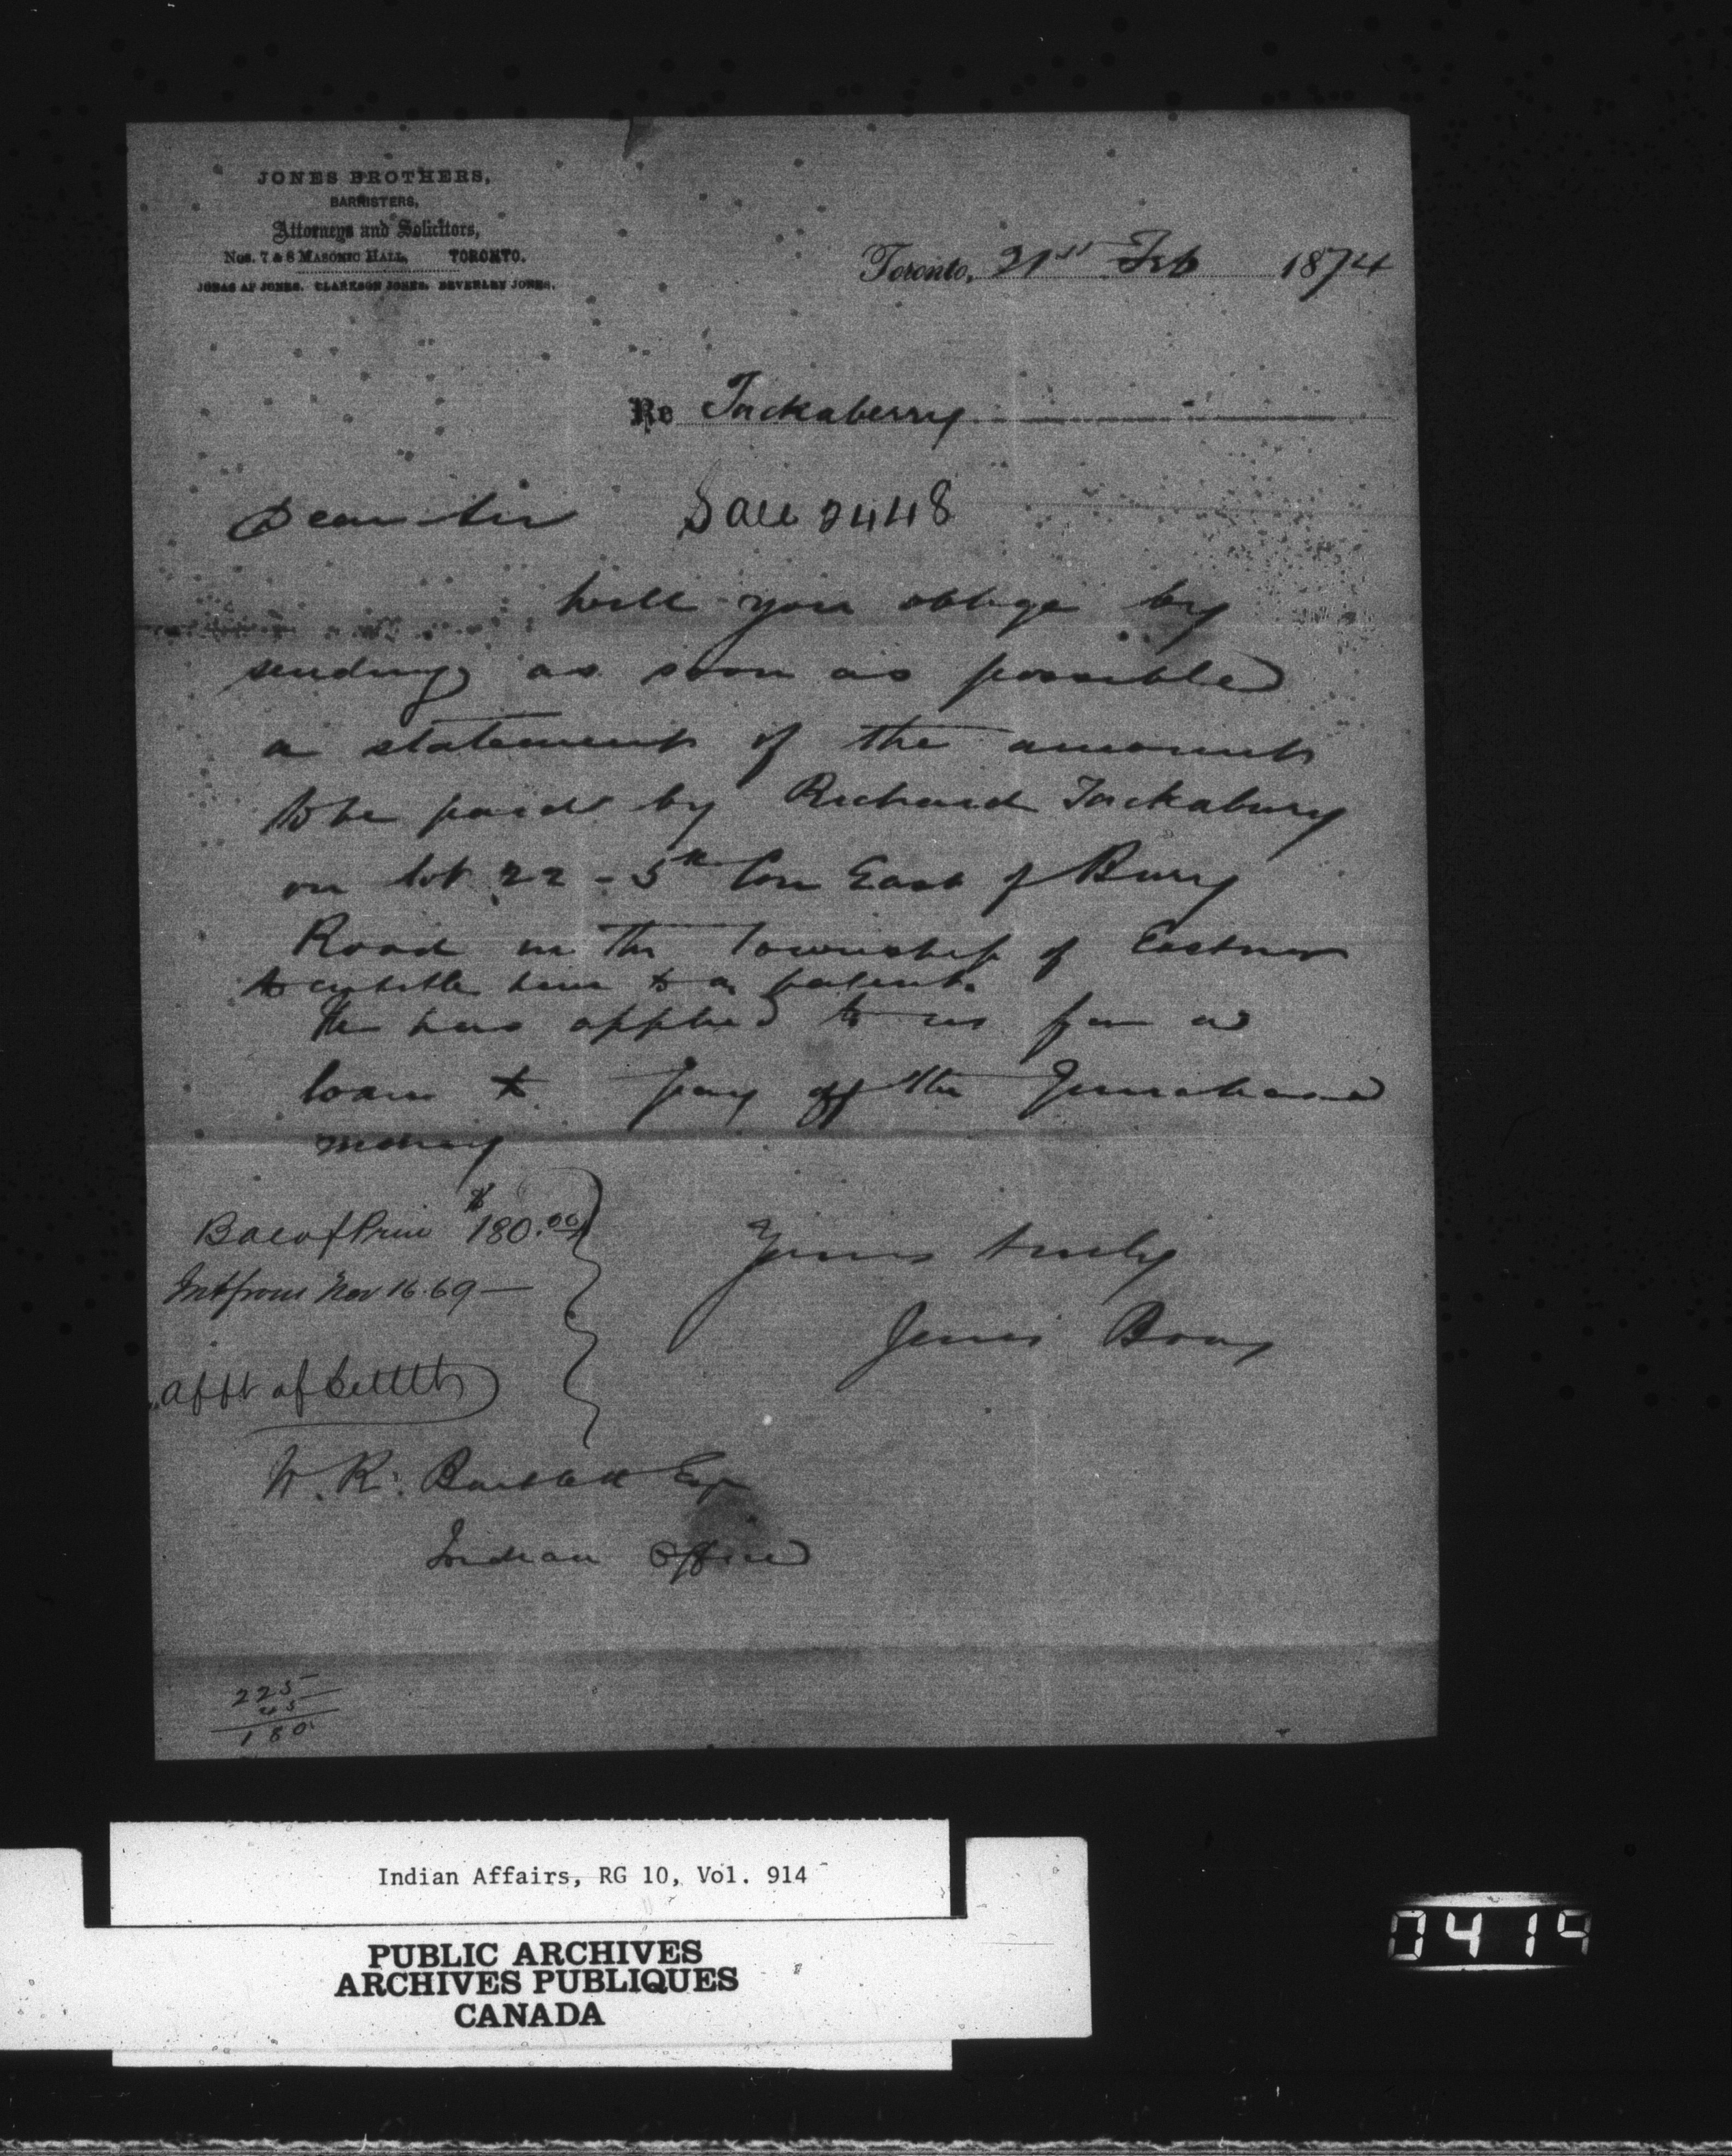 JONES BROTHERS,
BARRISTERS,
Attorneys and Solicitors,
Nos. 7 & 8 MASONIC HALL, TORONTO.
JONAS AP JONES. CLARKSON JONES. BEVERLEY JONES.
Toronto, 21st Feb 1874
Re Tackaberry
Dear Sir Sale 2448
Will you oblige by
sending as soon as possible
a statement of the amount
to be paid by Richard Tackabury
on lot 22 - 5th Con East of Bury
Road in the Township of Eastnor
to entitle him to a patent.
He has applied to us for a
loan to pay off the purchase
money
Bal of Prin $180.00
Int from Nov 16. 69 —
Yours truly
Jones Bros
afft of Settlt
W. R. Bartlett Esqr
Indian Office
225
45
180
Indian Affairs, RG 10, Vol. 914
PUBLIC ARCHIVES
ARCHIVES PUBLIQUES
CANADA
0419